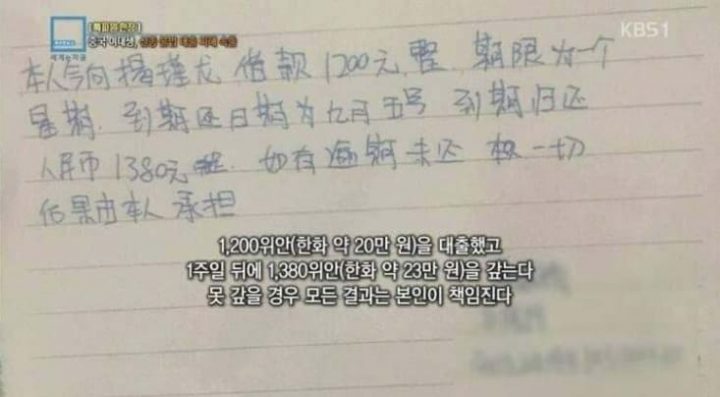 [특파원 현장]
중국 여대생, 신종 불법 대출 피해 속출
세계는 지금
KBS1
本人今向 杨瑾龙 借款 1200元 整 期限为一个
星期. 到期还日期为九月五号 到期归还
人民币 1380元整. 如有逾期未还 一切
后果由本人 承担
1,200위안(한화 약 20만 원)을 대출했고
1주일 뒤에 1,380위안(한화 약 23만 원)을 갚는다
못 갚을 경우 모든 결과는 본인이 책임진다